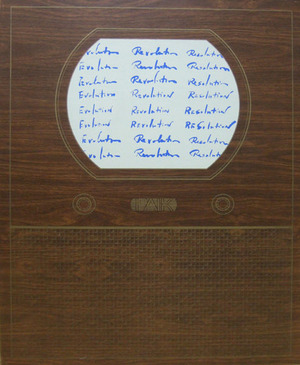 Evolution Revolution Resolution
Evolution Revolution Resolution
Evolution Revolution Resolution
Evolution Revolution Resolution
Evolution Revolution Resolution
Evolution Revolution Resolution
Evolution Revolution Resolution
Evolution Revolution Resolution